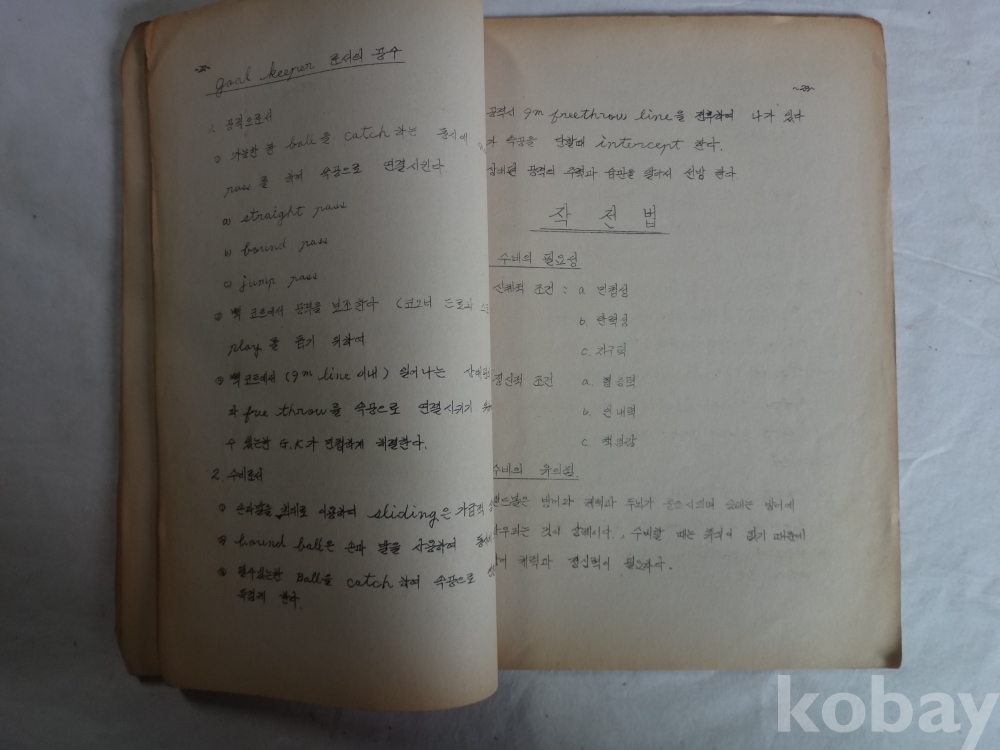 goal keeper 로서의 공수
1. 공격으로서
① 가능한 한 ball을 catch 하는 동시에
pass를 하여 속공으로 연결시킨다
a) straight pass
b) bound pass
c) jump pass
② 백 코트에서 공격을 보조한다 (코너 드로와
play를 돕기 위하여
③ 백코트에서 (9m line 이내) 일어나는
free throw를 속공으로 연결시키기
수 있는한 G.K가 민첩하게 해결한다.
2. 수비로서
① 손과발을 최대로 이용하여 sliding은 가급적
② bound ball은 손과 발을 사용하여
③ 될수있는한 Ball을 catch 하여 속공으로
한다
~29~
공격시 9m freethrow line을 전후하여 나가 있다
가 속공을 당할때 intercept 한다.
상대편 공격의 주력과 습관을 알아서 선방 한다
작 전 법
수비의 필요성
신체적 조건 : a 민첩성
b. 탄력성
c. 지구력
정신적 조건 a. 협동력
b. 인내력
c. 책임감
수비의 유의점
핸드볼은
것이 상례이다. 수비할 때는
체력과 정신력이 필요하다.
kobay